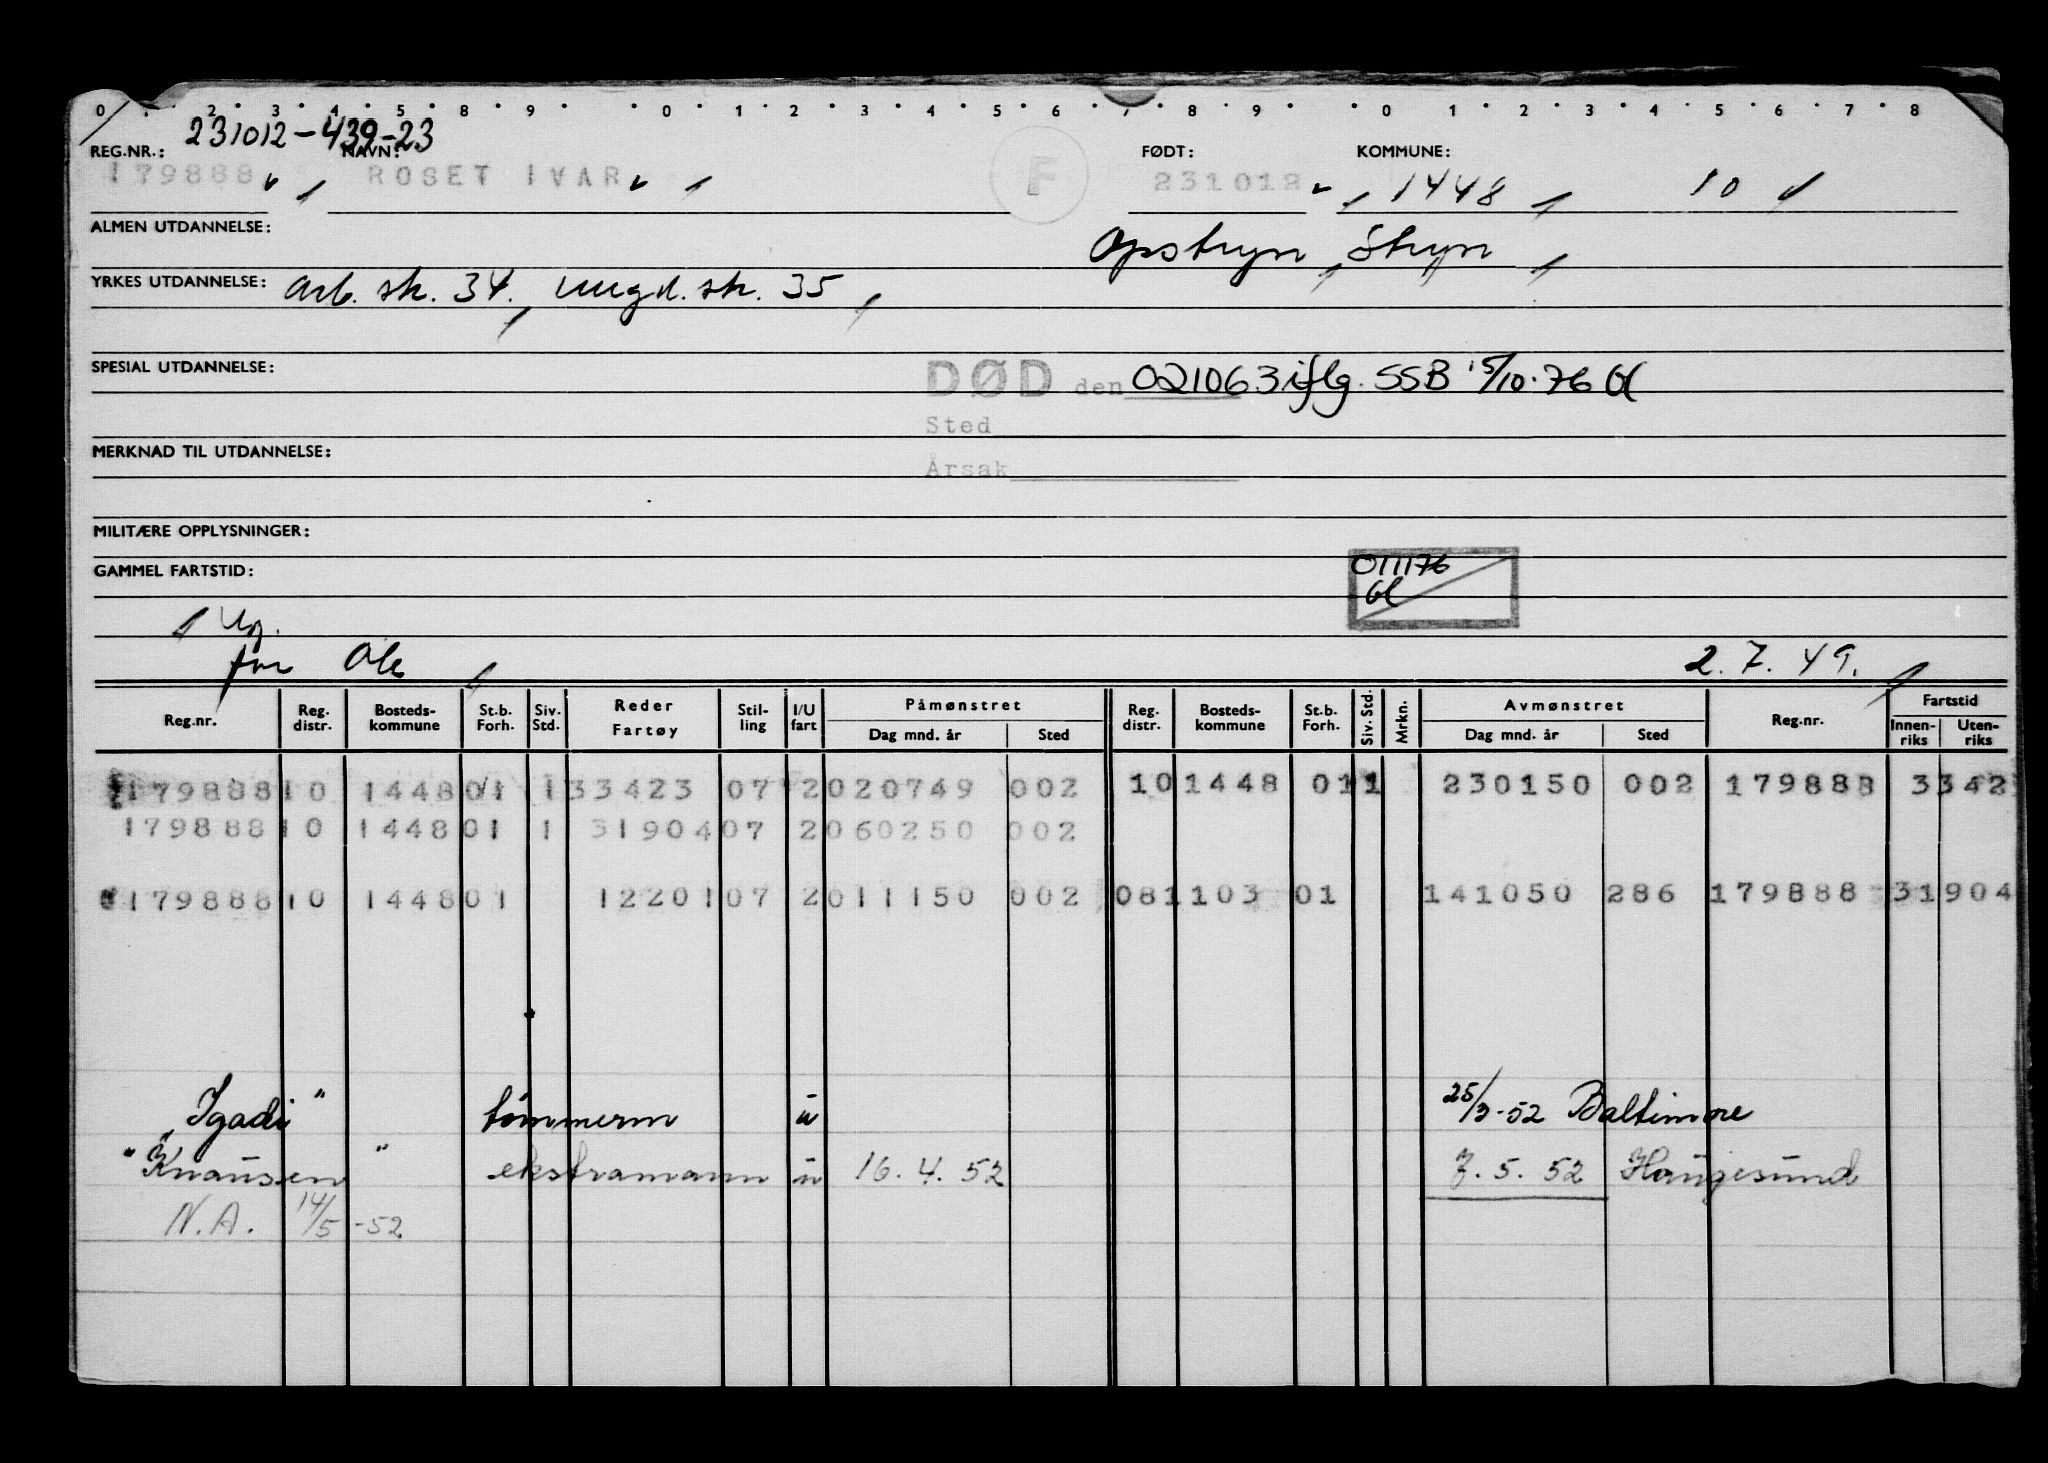 0 . 2 . 3 . 4 . 5 . 8 . 9 . . 0 . 1 . 2 . 3 . 4 . 5 . 6 . 7 . 8 . 9 . . 0 . 1 . 2 . 3 . 4 . 5 . 6 . 7 . 8
231012-439-23
REG.NR.: NAVN: FØDT: KOMMUNE:
179888 ROSET IVAR F 231012 1448 10
ALMEN UTDANNELSE: Opstryn, Stryn,
YRKES UTDANNELSE: Arb. sk. 34, ungd. sk. 35,
SPESIAL UTDANNELSE: DØD den 021063 iflg. SSB 15/10-76 Gl
Sted
MERKNAD TIL UTDANNELSE:
Årsak
MILITÆRE OPPLYSNINGER:
GAMMEL FARTSTID: 011176
Gl
for Ole 2.7.49.
Reg.nr. Reg. distr. Bosteds-kommune St.b. Forh. Siv. Std. Reder Fartøy Stil-ling I/U fart Påmønstret Dag mnd. år Sted Reg. distr. Bosteds-kommune St.b. Forh. Siv. Std. Mrkn. Avmønstret Dag mnd. år Sted Reg.nr. Fartstid Innen-riks Uten-riks
179888 10 1448 01 1 33423 07 2 020749 002 10 1448 01 1 230150 002 179888 3342
179888 10 1448 01 1 31904 07 2 060250 002
179888 10 1448 01 12201 07 2 011150 002 08 1103 01 141050 286 179888 31904
"Igadi" tømmerm u 25/3-52 Baltimore
"Knausen" ekstramann u 16.4.52 7.5.52 Haugesund
N.A. 14/5-52